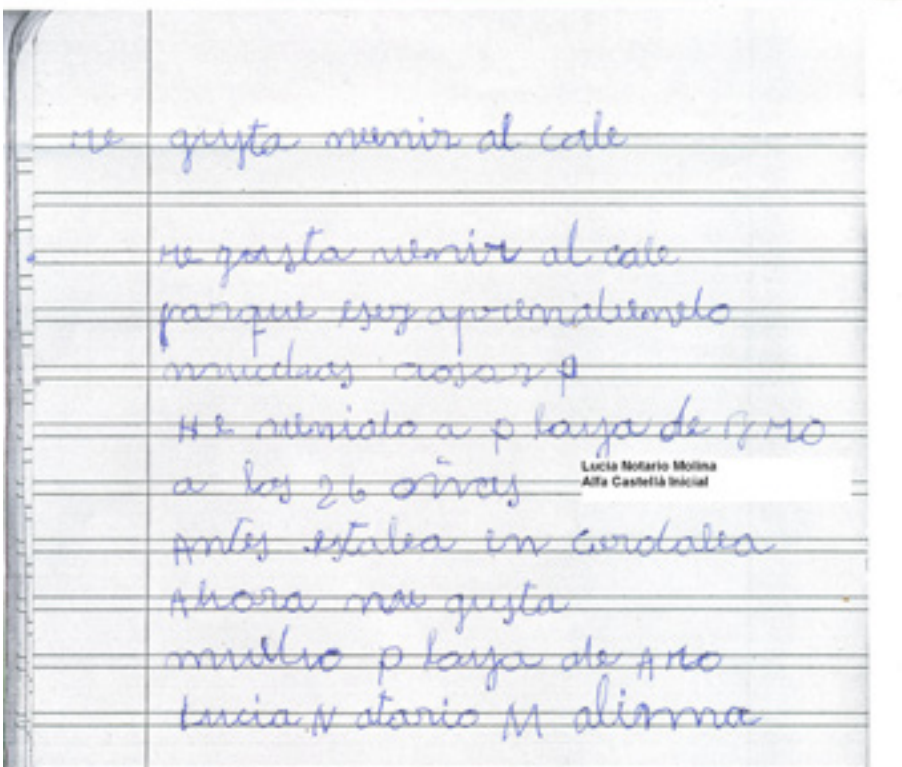 Me gusta venir al cale
Me gusta venir al cale
parque esey aprendiendo
muchas cosas
He venido a p laya de AMO
a los 26 años
Lucia Notario Molina
Alfa Castellà Inicial
Antes estaba en Cordaba
Ahora me gusta
mucho p laya de AMO
Lucia N atario M alinna